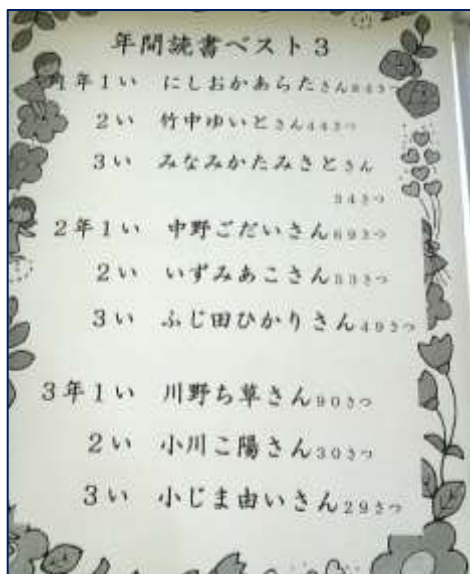 年間読書ベスト3
1年1い にしおかあらたさん84さつ
2い 竹中ゆいとさん44さつ
3い みなみかたみさとさん
34さつ
2年1い 中野ごだいさん69さつ
2い いずみあこさん53さつ
3い ふじ田ひかりさん49さつ
3年1い 川野ち草さん90さつ
2い 小川こ陽さん30さつ
3い 小じま由いさん29さつ